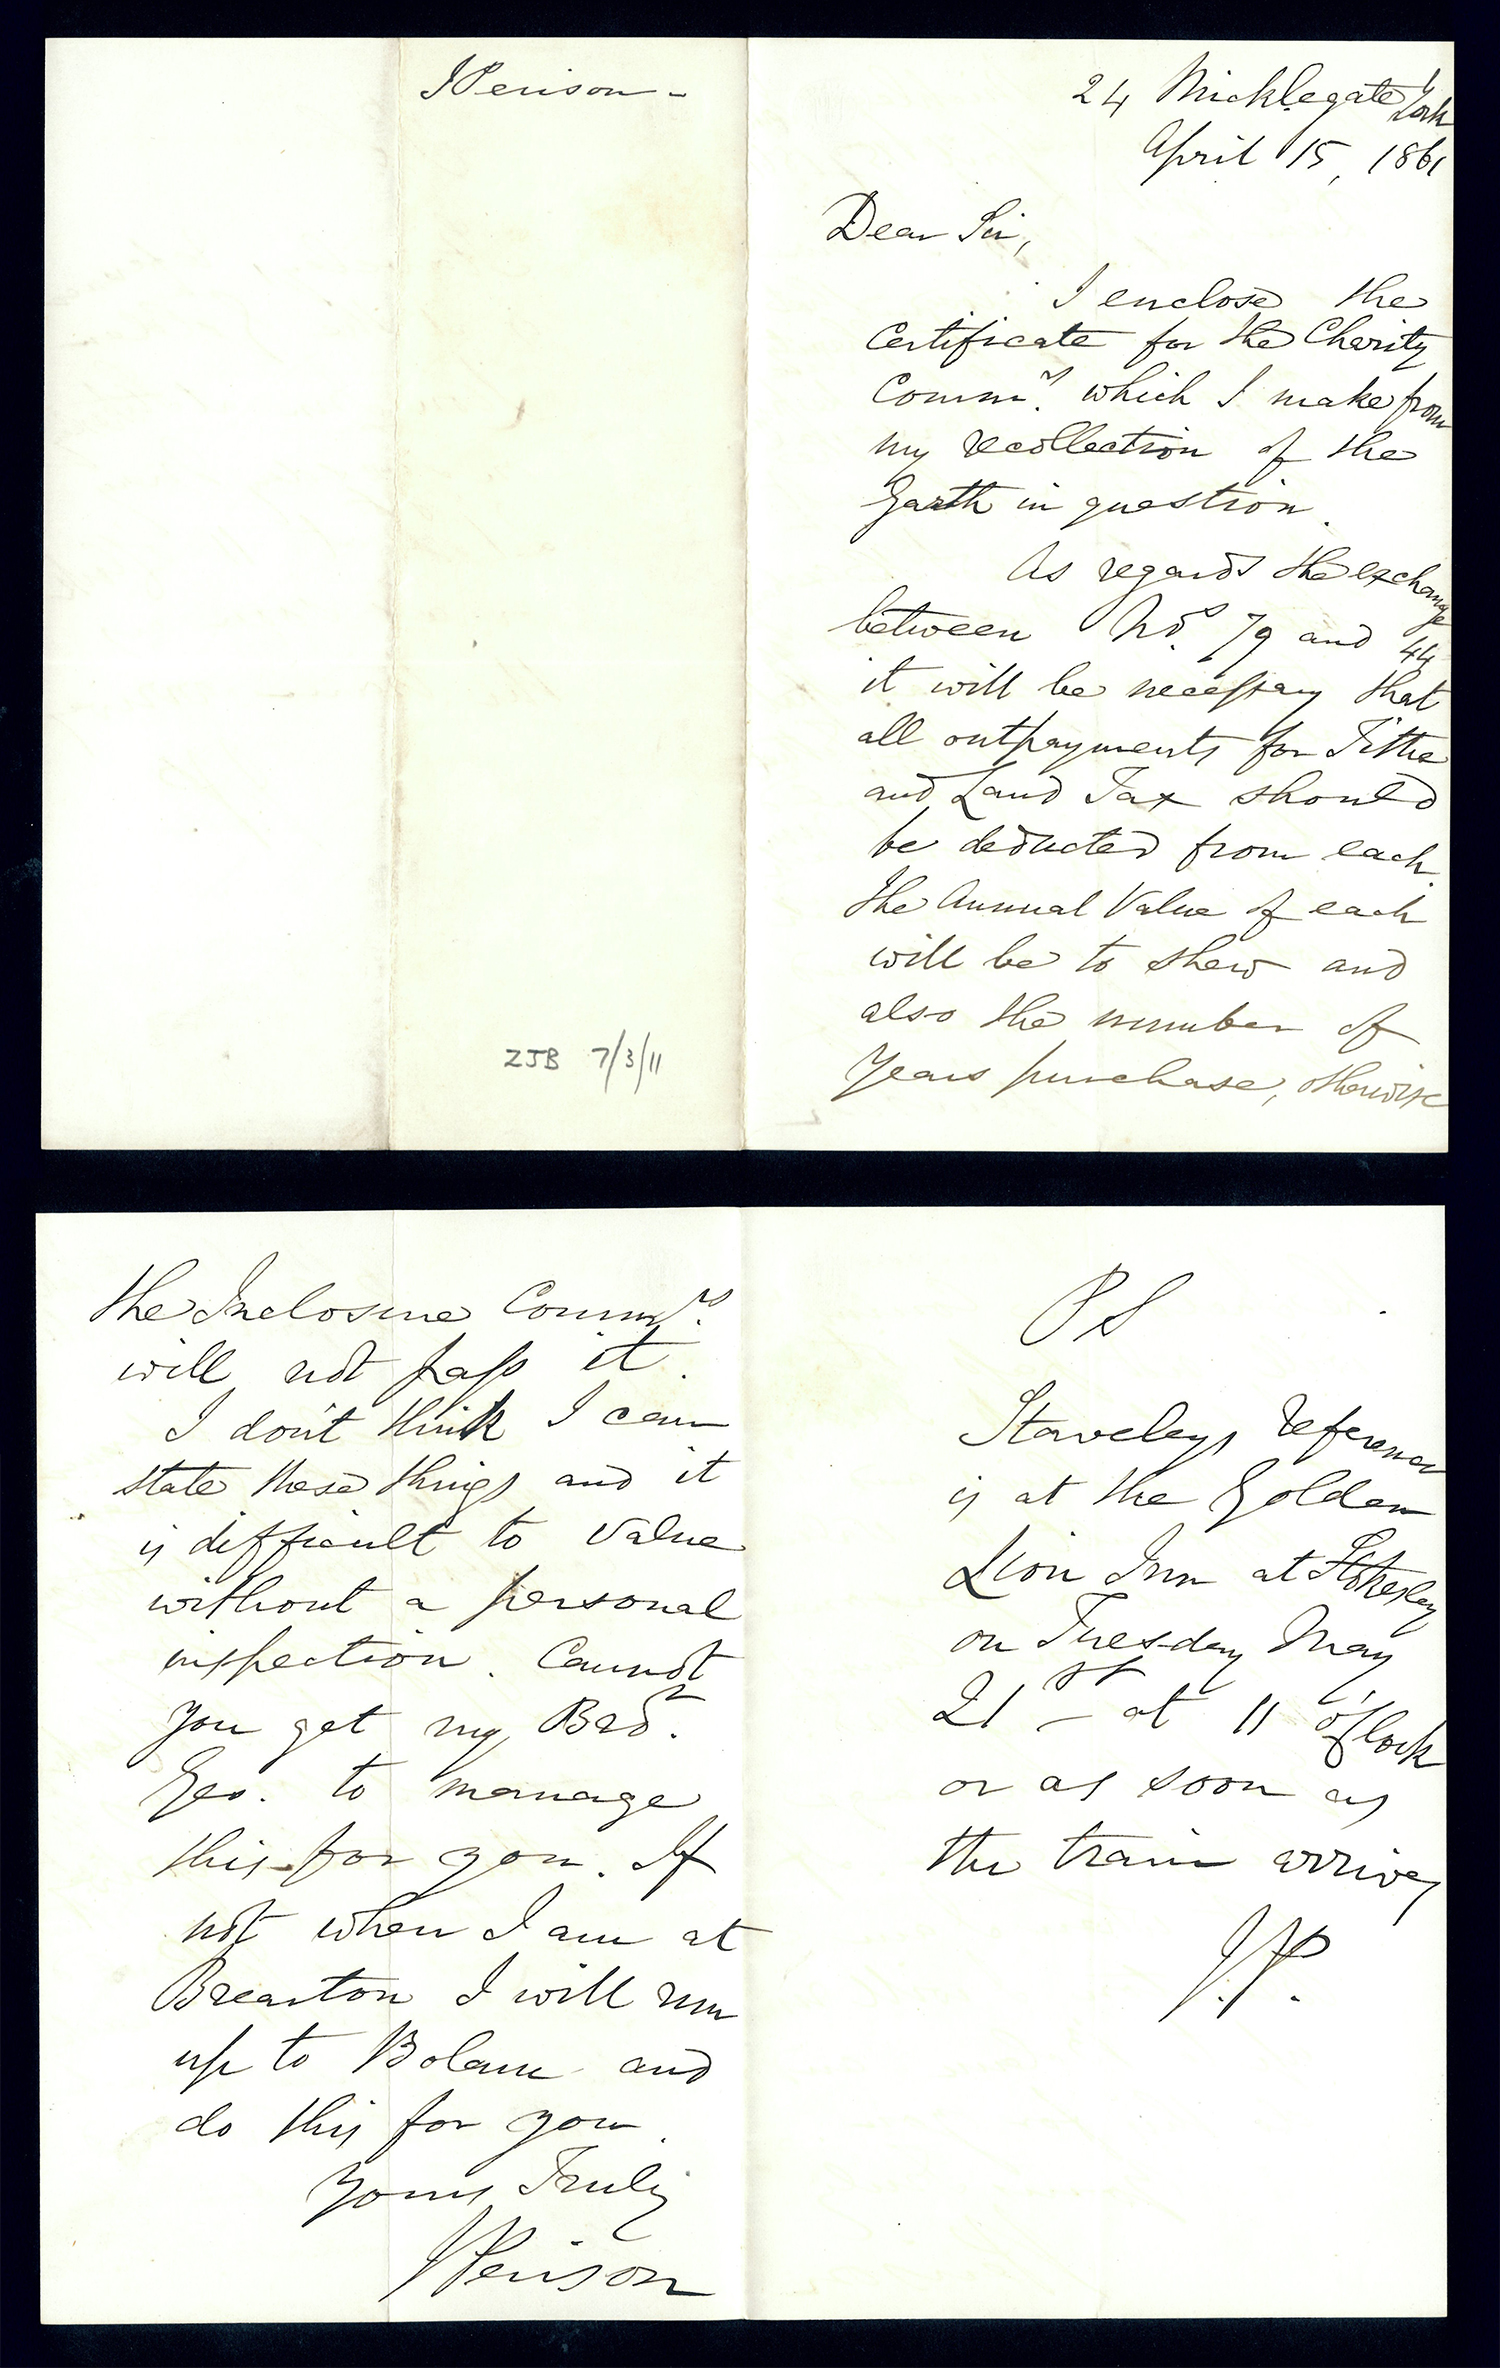 J Perison -
ZJB 7/3/11
24 Micklegate York
April 15, 1861
Dear Sir,
I enclose the
Certificate for the Charity
Commrs. which I make from
my recollection of the
Garth in question.
As regards the exchange
between Nos. 79 and 44
it will be necessary that
all outpayments for Tithe
and Land Tax should
be deducted from each.
The Annual Value of each
will be to shew and
also the number of
Years purchase, otherwise
the Inclosure Commrs.
will not pass it.
I don't think I can
state these things and it
is difficult to value
without a personal
inspection. Cannot
you get my Bror.
Geo. to manage
this for you. If
not when I am at
Brearton I will run
up to Bolam and
do this for you.
Yours Truly
J Perison
PS
Staveleys reference
is at the Golden
Lion Inn at Stokesley
on Tuesday May
21st at 11 o'Clock
or as soon as
the train arrives
J.P.